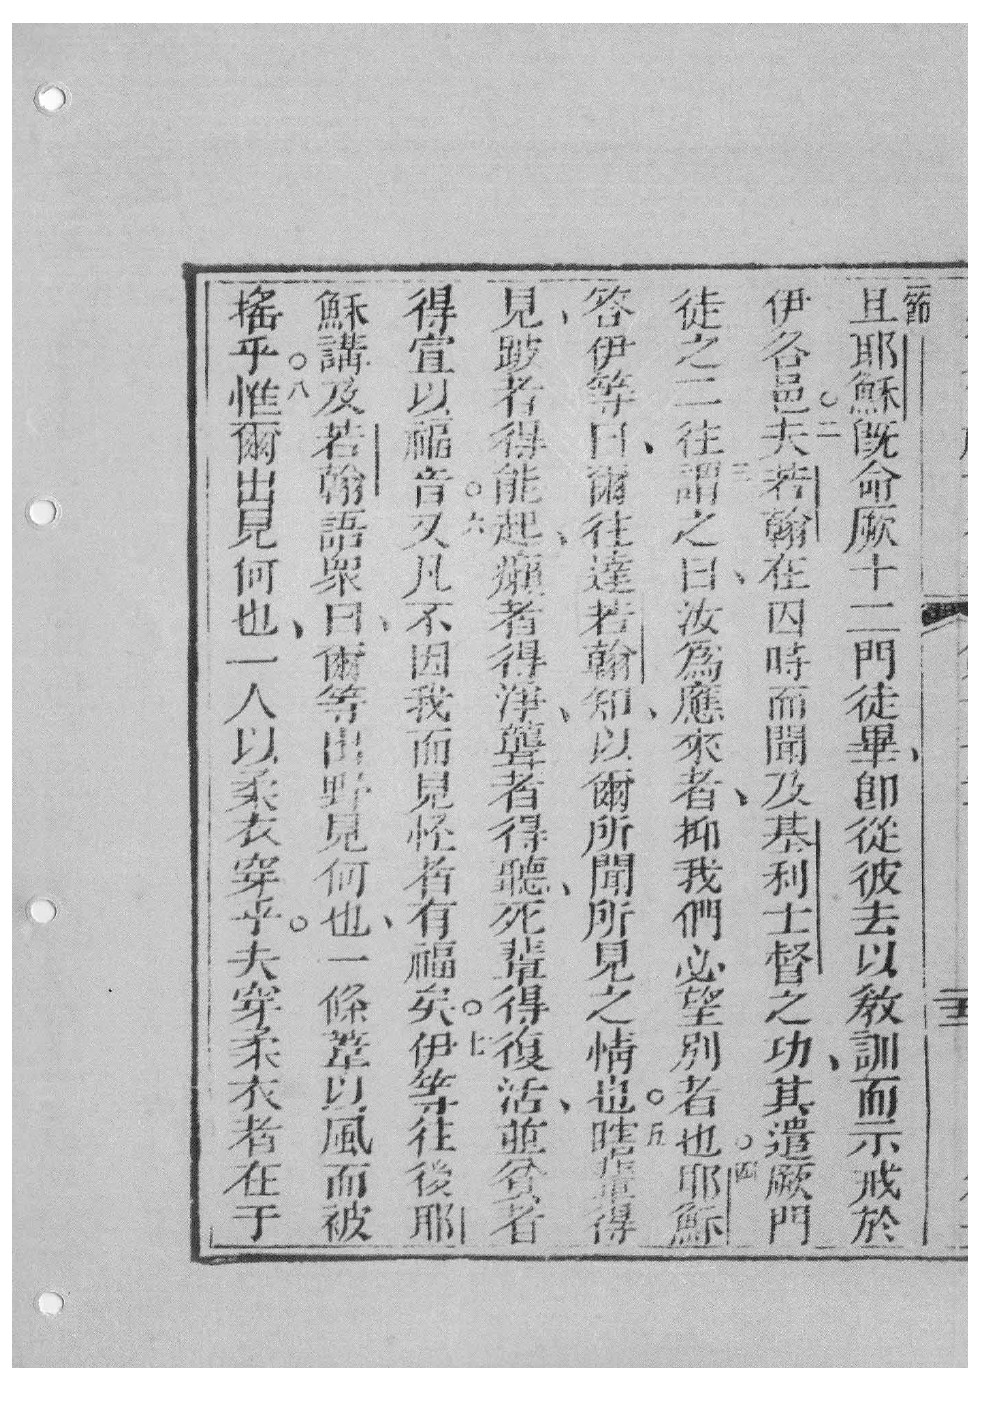 節
且耶穌旣命厥十二門徒畢、卽從彼去以敎訓而示戒於
伊各邑○二夫若翰在囚時而聞及基利士督之功、其遣厥門
徒之二往三謂之曰、汝爲應來者、抑我們必望別者也○四耶穌
答伊等曰、爾往達若翰知、以爾所聞所見之情也○五瞎輩得
見、跛者得能起、癩者得淨、聾者得聽、死輩得復活、並貧者
得宣以福音○六又凡不因我而見怪者有福矣○七伊等往後耶
穌講及若翰語衆曰、爾等出野見何也、一條葦以風而被
搖乎○八惟爾出見何也、一人以柔衣穿乎○夫穿柔衣者在于